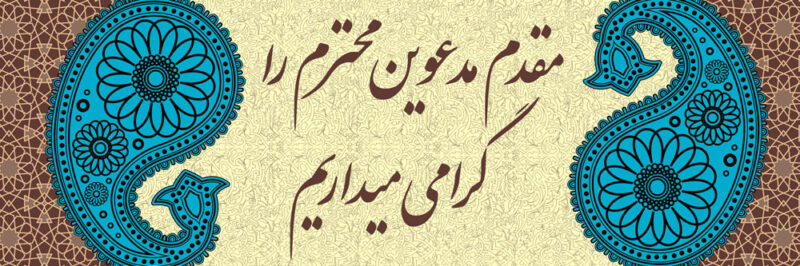 مقدم مدعوین محترم را
گرامی میداریم